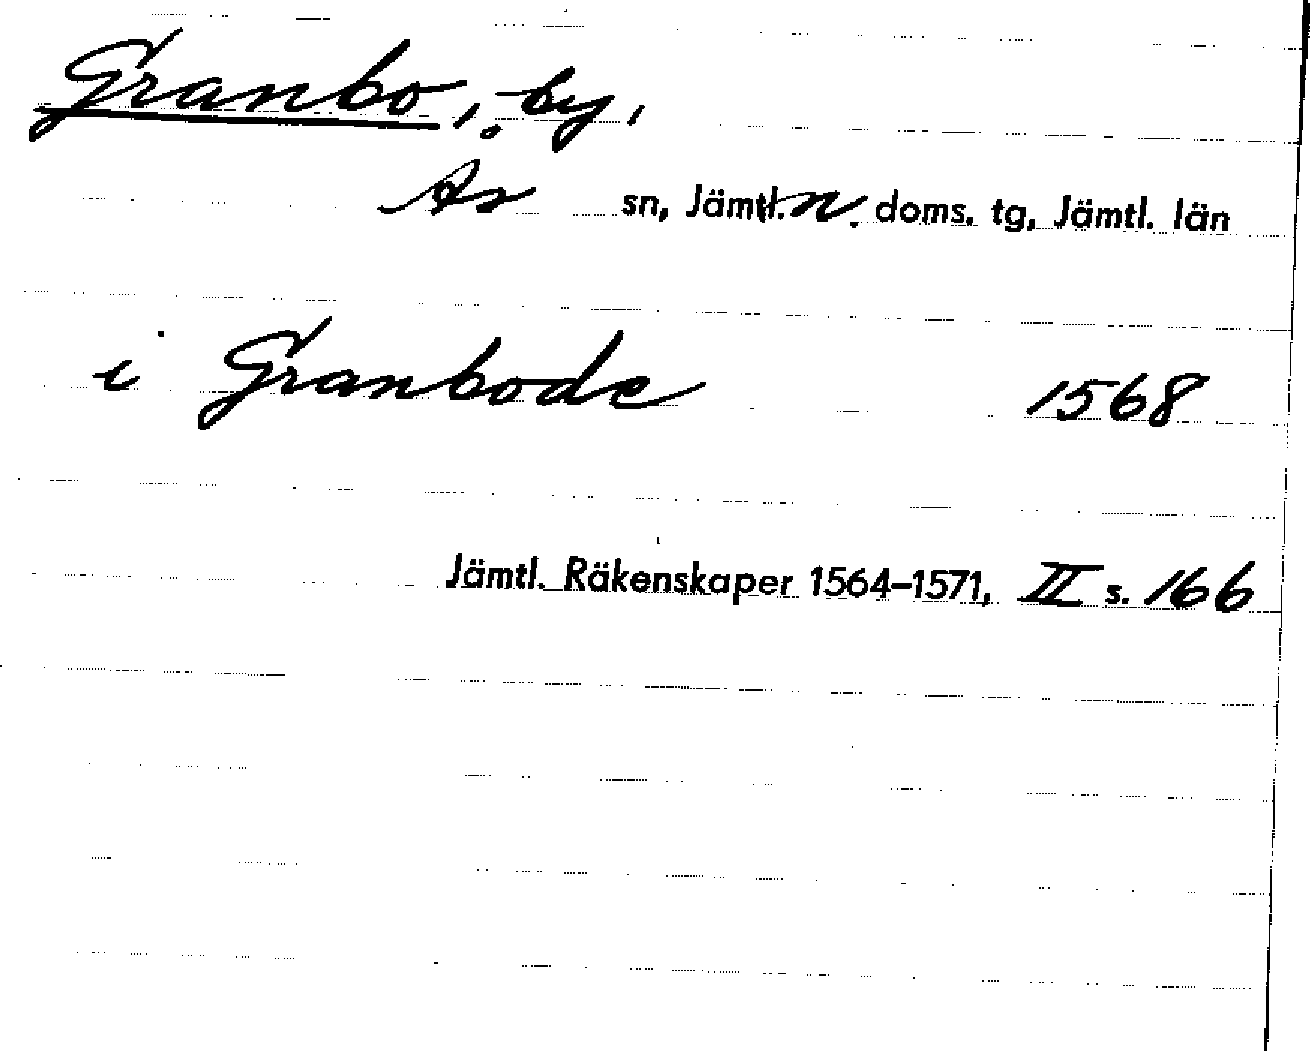 Granbo, by,
Ås sn, Jämtl. n. doms. tg, Jämtl. län
i Granbode 1568
Jämtl. Räkenskaper 1564–1571, II s. 166